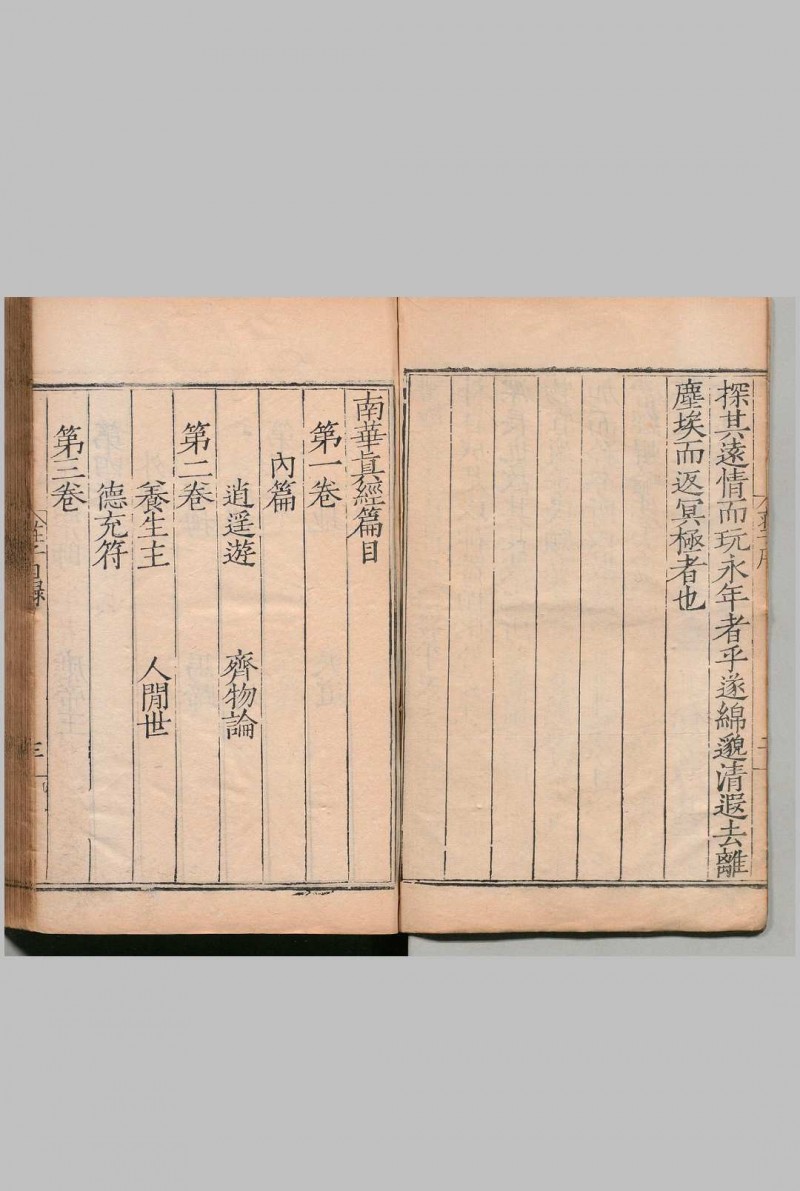 探其遠情而玩永年者乎遂綿邈清遐去離
塵埃而返冥極者也
南華真經篇目
第一卷
內篇
逍遥遊　齊物論
第二卷
養生主　人閒世
德充符
第三卷